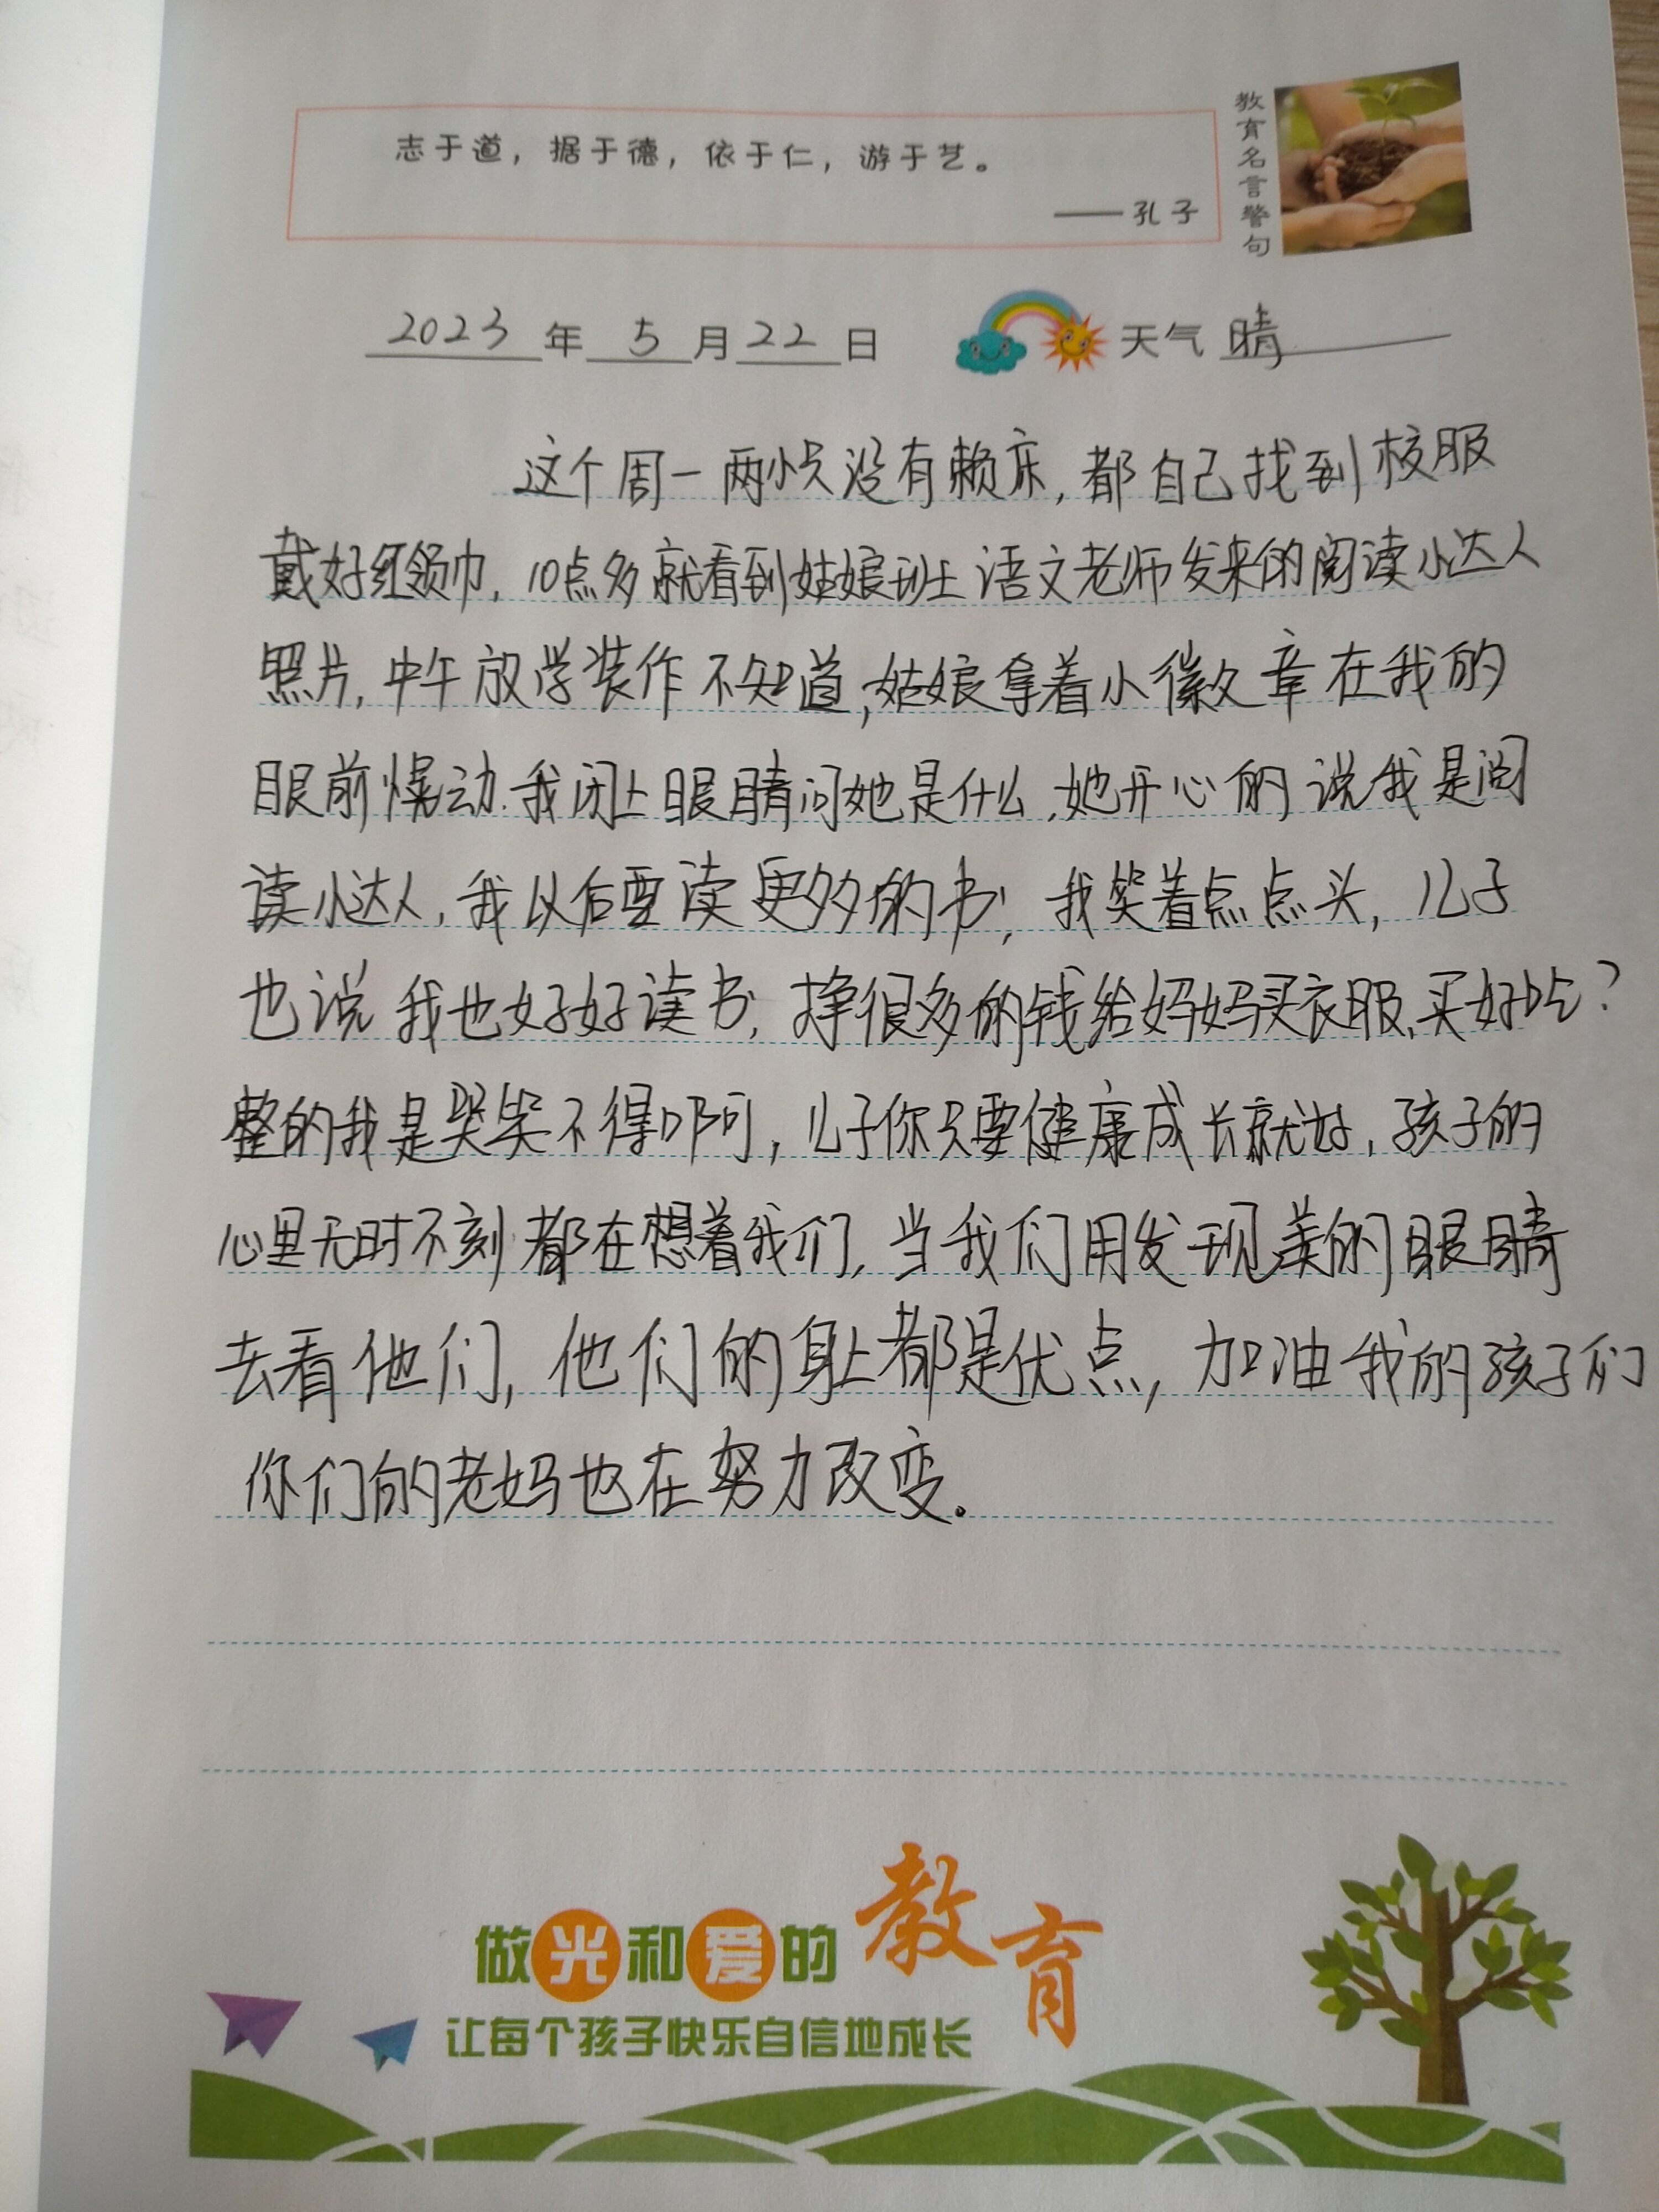 志于道，据于德，依于仁，游于艺。
——孔子
教育名言警句
2023年5月22日 天气 晴
这个周一两小只没有赖床，都自己找到校服
戴好红领巾，10点多就看到姑娘班上语文老师发来的阅读小达人
照片，中午放学装作不知道，姑娘拿着小徽章在我的
眼前慌动.我闭上眼睛问她是什么，她开心的说我是阅
读小达人，我以后要读更多的书，我笑着点点头，儿子
也说我也好好读书，挣很多的钱给妈妈买衣服、买好吃?
整的我是哭笑不得啊，儿子你只要健康成长就好，孩子的
心里无时不刻都在想着我们，当我们用发现美的眼睛
去看他们，他们的身上都是优点，加油我的孩子们
你们的老妈也在努力改变。
做光和爱的教育
让每个孩子快乐自信地成长